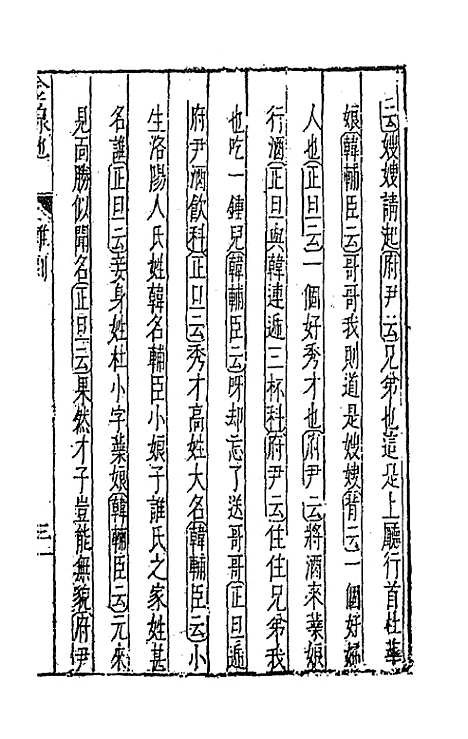 云嫂嫂請起府尹云兄弟也這是上廳行首杜蘂
娘韓輔臣云哥哥我則道是嫂嫂背云一個好婦
人也正旦云一個好秀才也府尹云將酒來蘂娘
行酒正旦與韓連遞三杯科府尹云住住兄弟我
也吃一鍾兒韓輔臣云呀却忘了送哥哥正旦遞
府尹酒飲科正旦云秀才高姓大名韓輔臣云小
生洛陽人氏姓韓名輔臣小娘子誰氏之家姓甚
名誰正旦云妾身姓杜小字蘂娘韓輔臣云元來
見面勝似聞名正旦云果然才子豈能無貌府尹
金線池
雜劇
三